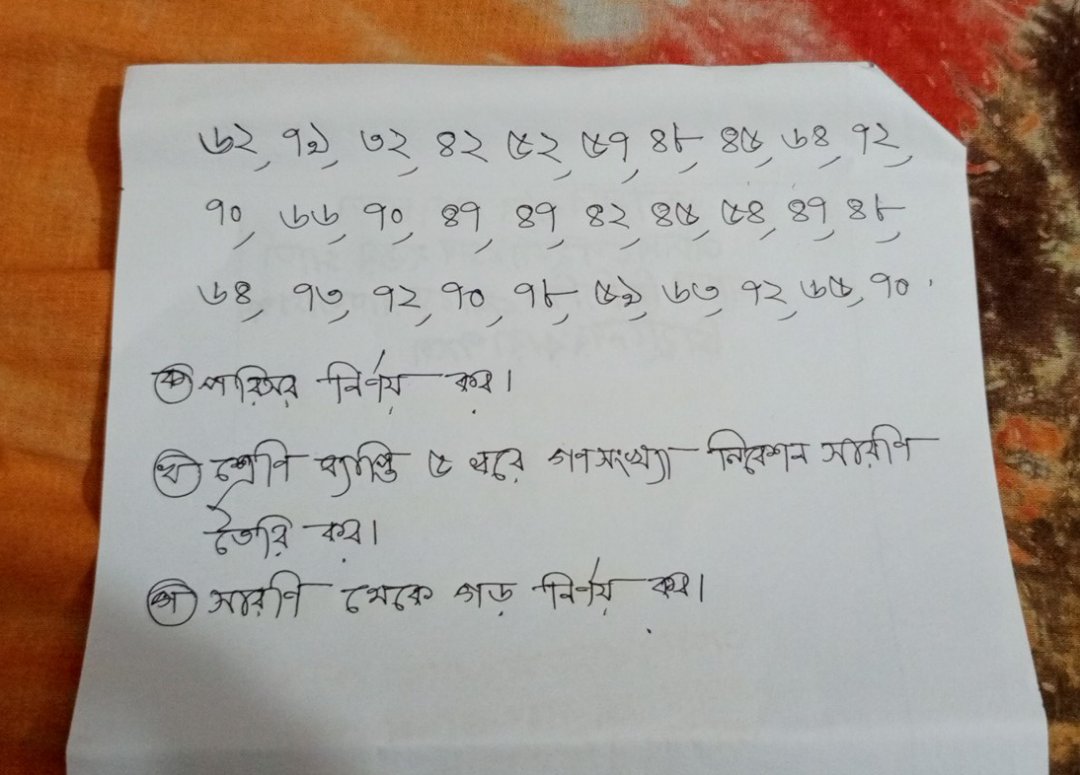 ৬২, ৭৯, ৩২, ৪২ ৫২, ৫৭, ৪৮, ৪৫, ৬৪, ৭২,
৭০, ৬৬, ৭০, ৪৭, ৪৭, ৪২, ৪৫, ৫৪, ৪৭, ৪৮,
৬৪, ৭৩, ৭২, ৭০, ৭৮, ৫৯, ৬৩, ৭২, ৬৫, ৭০.
ক পরিসর নির্ণয় কর।
খ শ্রেণি ব্যাপ্তি ৫ ধরে গণসংখ্যা নিবেশন সারণি
তৈরি কর।
গ সারণি থেকে গড় নির্ণয় কর।